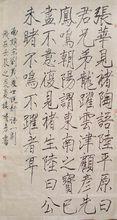 張華見褚陶語陸平原曰
君兄弟龍躍雲津顧彥先
鳳鳴朝陽謂東南之寶已
盡不意復見褚生陸曰公
未睹不鳴不躍者耳